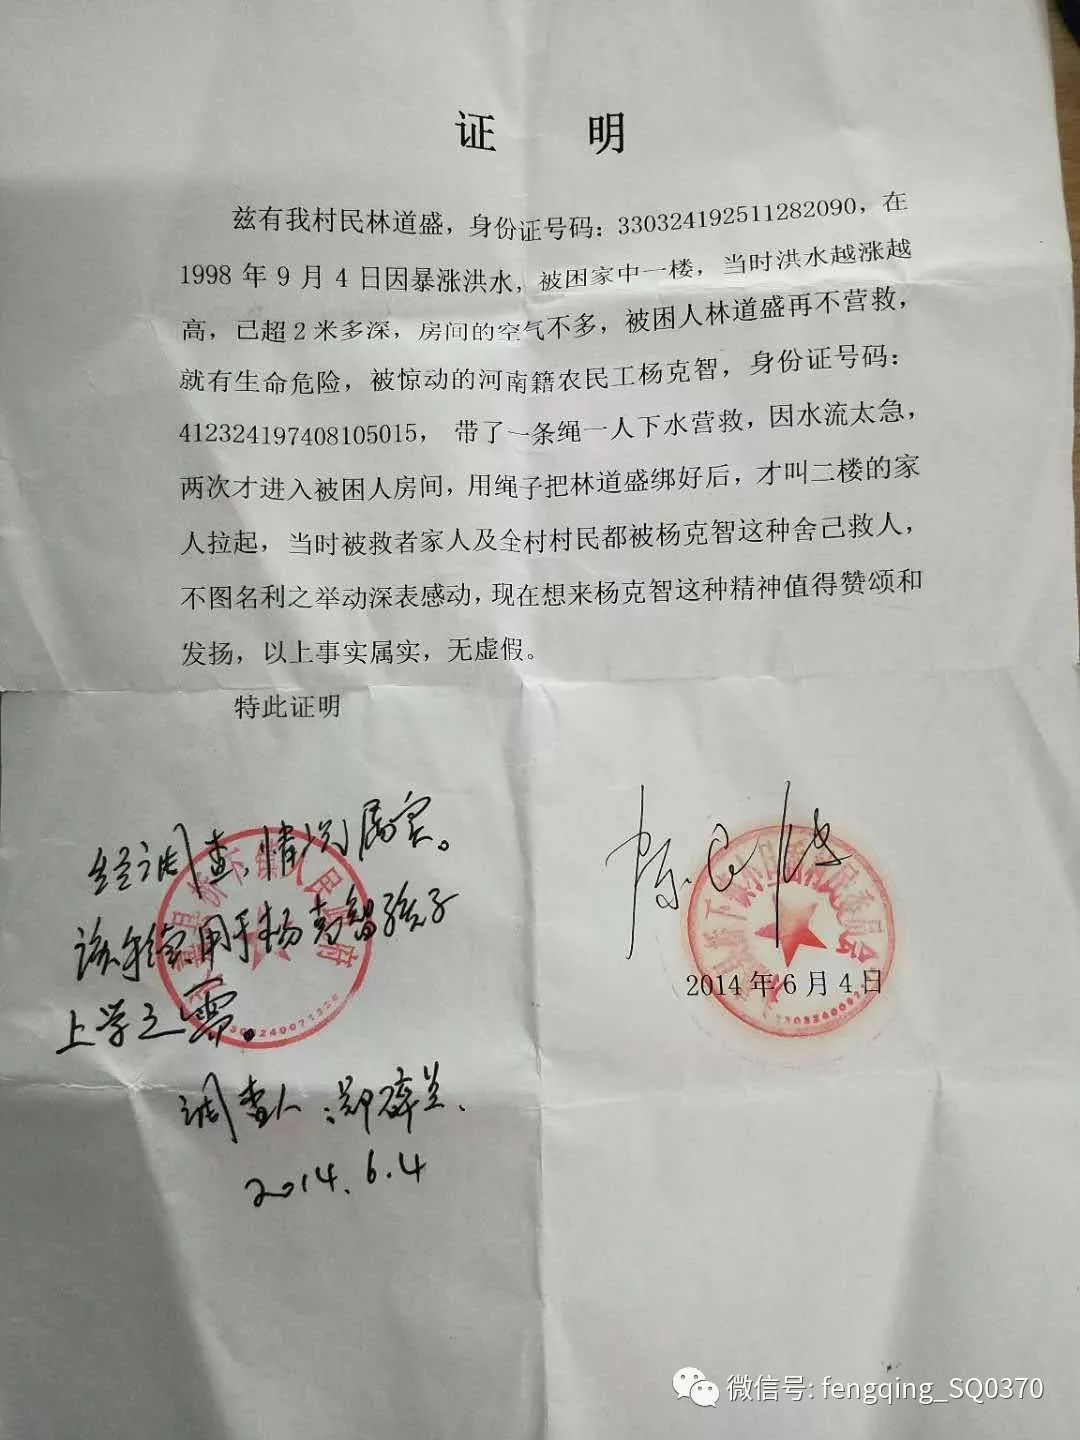 证 明
兹有我村民林道盛，身份证号码：330324192511282090，在
1998年9月4日因暴涨洪水，被困家中一楼，当时洪水越涨越
高，已超2米多深，房间的空气不多，被困人林道盛再不营救，
就有生命危险，被惊动的河南籍农民工杨克智，身份证号码：
412324197408105015，带了一条绳一人下水营救，因水流太急，
两次才进入被困人房间，用绳子把林道盛绑好后，才叫二楼的家
人拉起，当时被救者家人及全村村民都被杨克智这种舍己救人，
不图名利之举动深表感动，现在想来杨克智这种精神值得赞颂和
发扬，以上事实属实，无虚假。
特此证明
经调查，情况属实。
该手续用于杨克智孩子
上学之需。
调查人：郑
2014.6.4
县桥下镇人民政府
陈
县桥下镇 村民委员会
2014年6月4日
微信号: fengqing_SQ0370